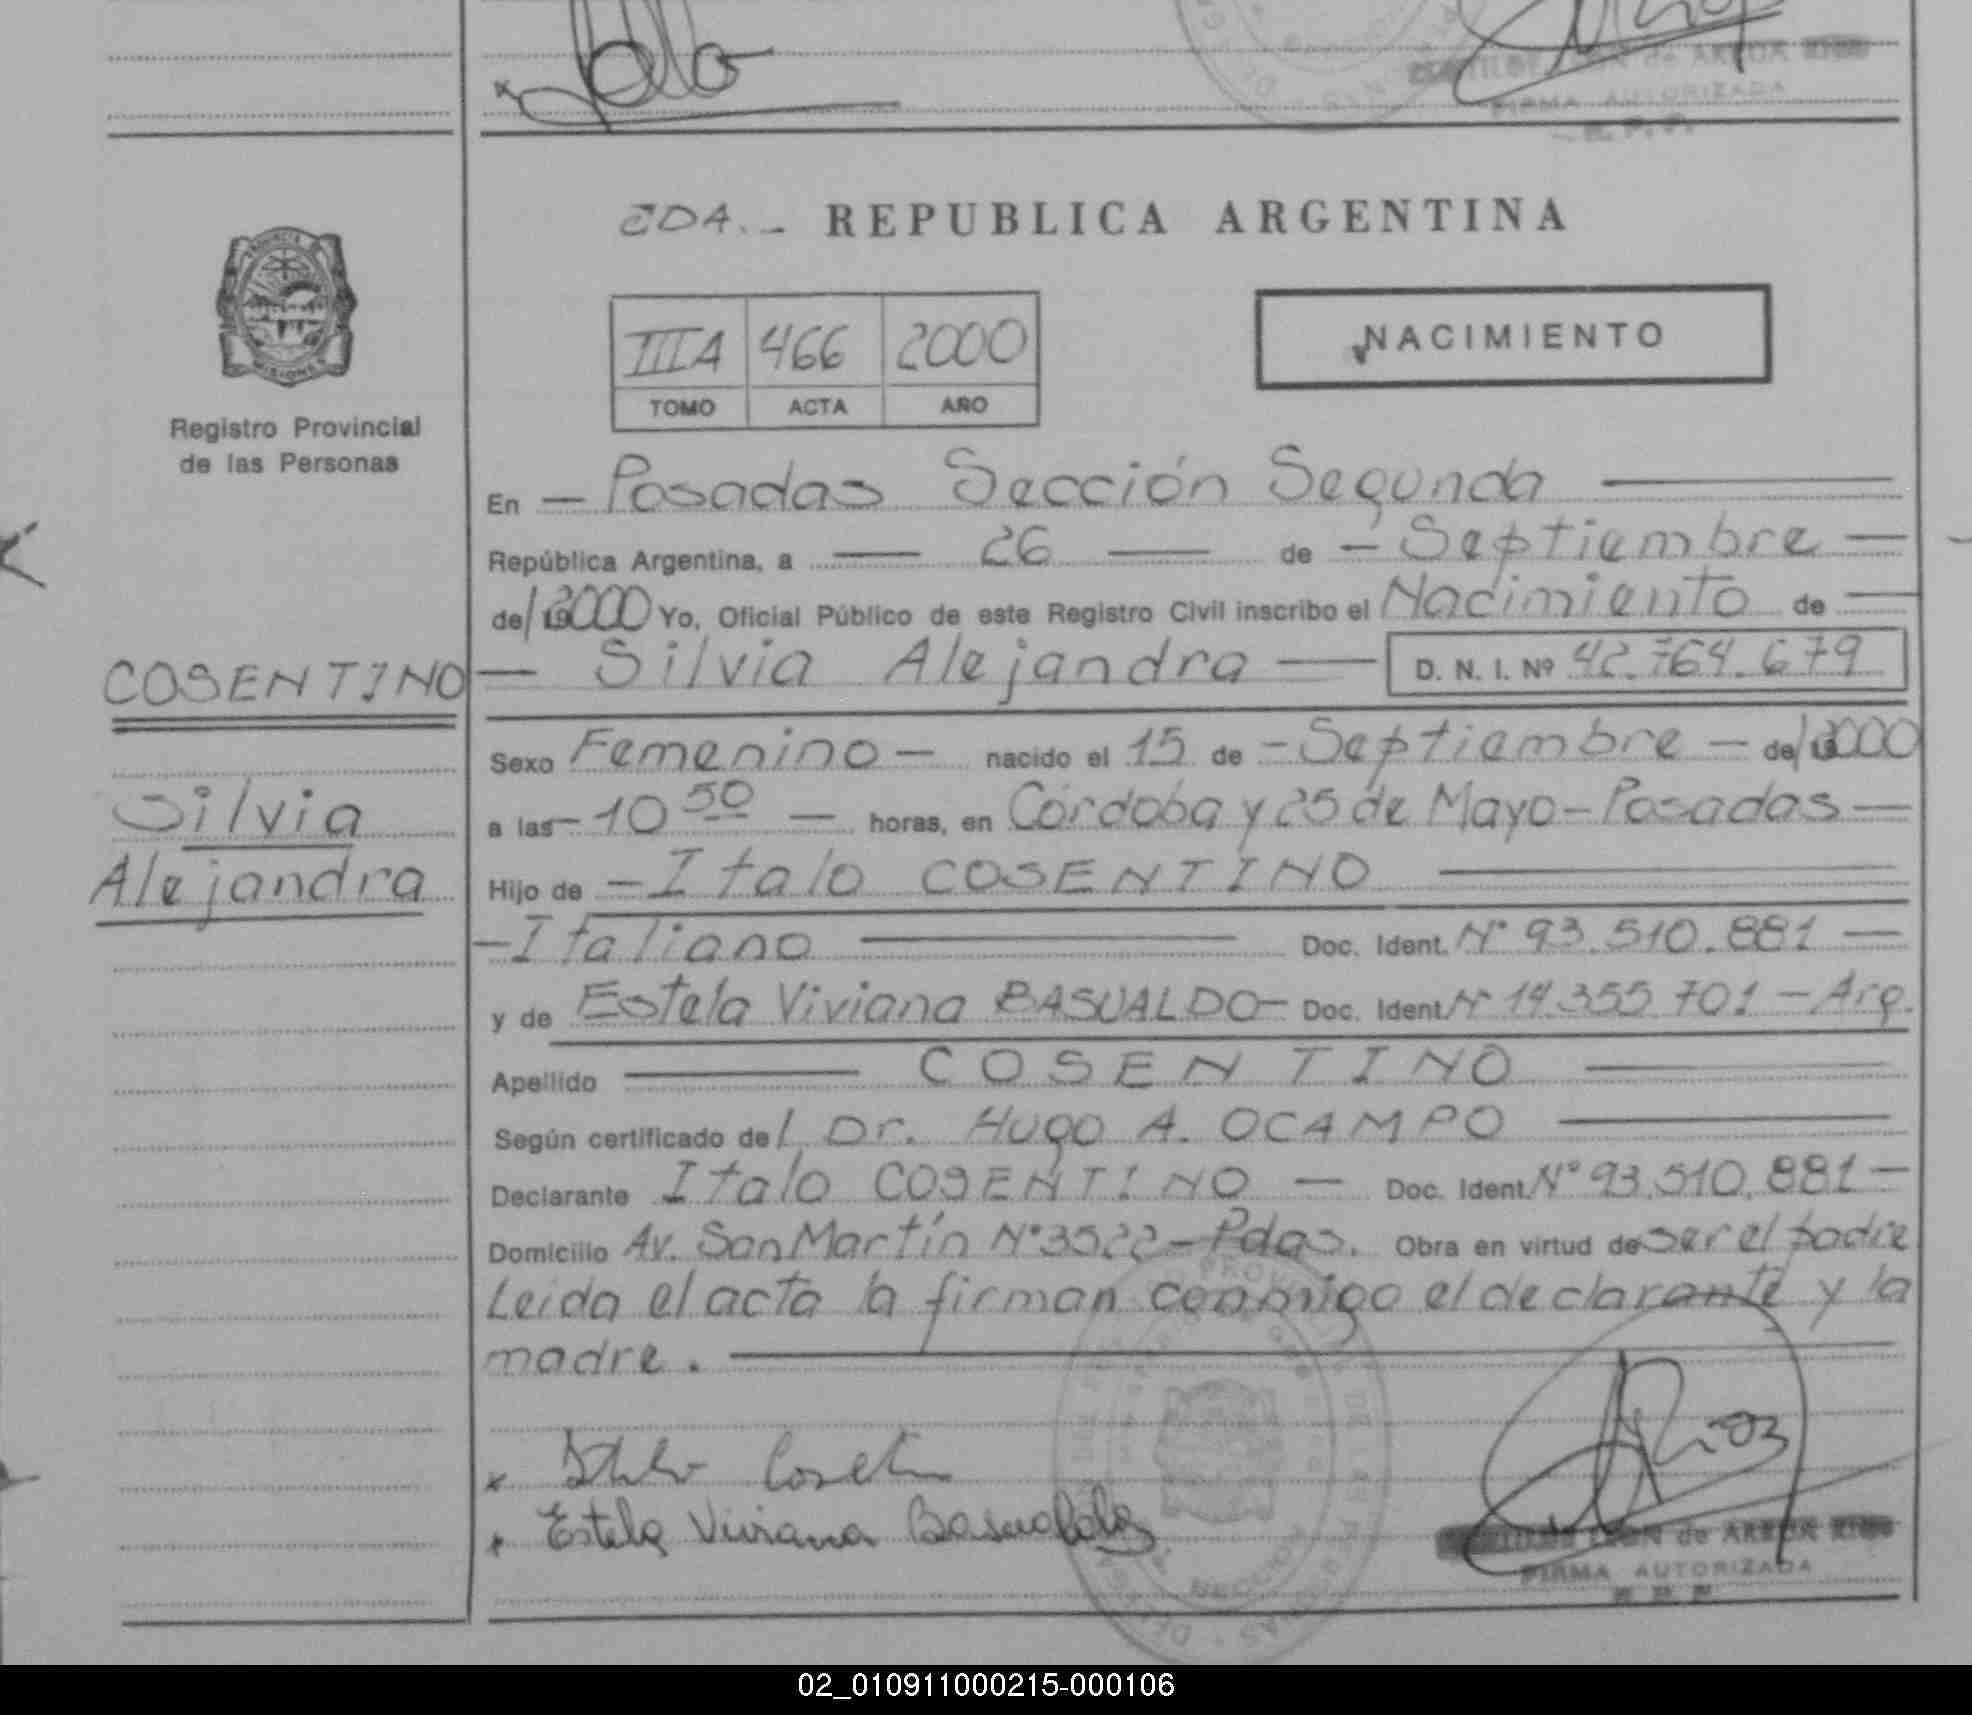 FIRMA AUTORIZADA
2DA.- REPUBLICA ARGENTINA
PROVINCIA
MISIONES
IIIA 466 2000
TOMO ACTA AÑO
NACIMIENTO
Registro Provincial
de las Personas
En - Posadas Sección Segunda
República Argentina, a 26 de - Septiembre -
de/ 2000 Yo, Oficial Público de este Registro Civil inscribo el Nacimiento de
COSENTINO
- Silvia Alejandra - D. N. I. Nº 42.764.679
Sexo Femenino - nacido el 15 de - Septiembre - de/ 2000
Silvia
a las - 10 50 - horas, en Córdoba y 25 de Mayo - Posadas -
Alejandra
Hijo de - Italo COSENTINO
- Italiano Doc. Ident. Nº 93.510.881 -
y de Estela Viviana BASUALDO - Doc. Ident Nº 14.355.701 - Arg.
Apellido COSENTINO
Según certificado de l Dr. Hugo A. OCAMPO
Declarante Italo COSENTINO - Doc. Ident. Nº 93.510.881 -
Domicilio Av. San Martín Nº 3522 - Pdas. Obra en virtud de ser el padre
Leida el acta la firman conmigo el declarante y la
madre.
Estela Viviana Basualdo
de ARECA RIOS
FIRMA AUTORIZADA
02_010911000215-000106